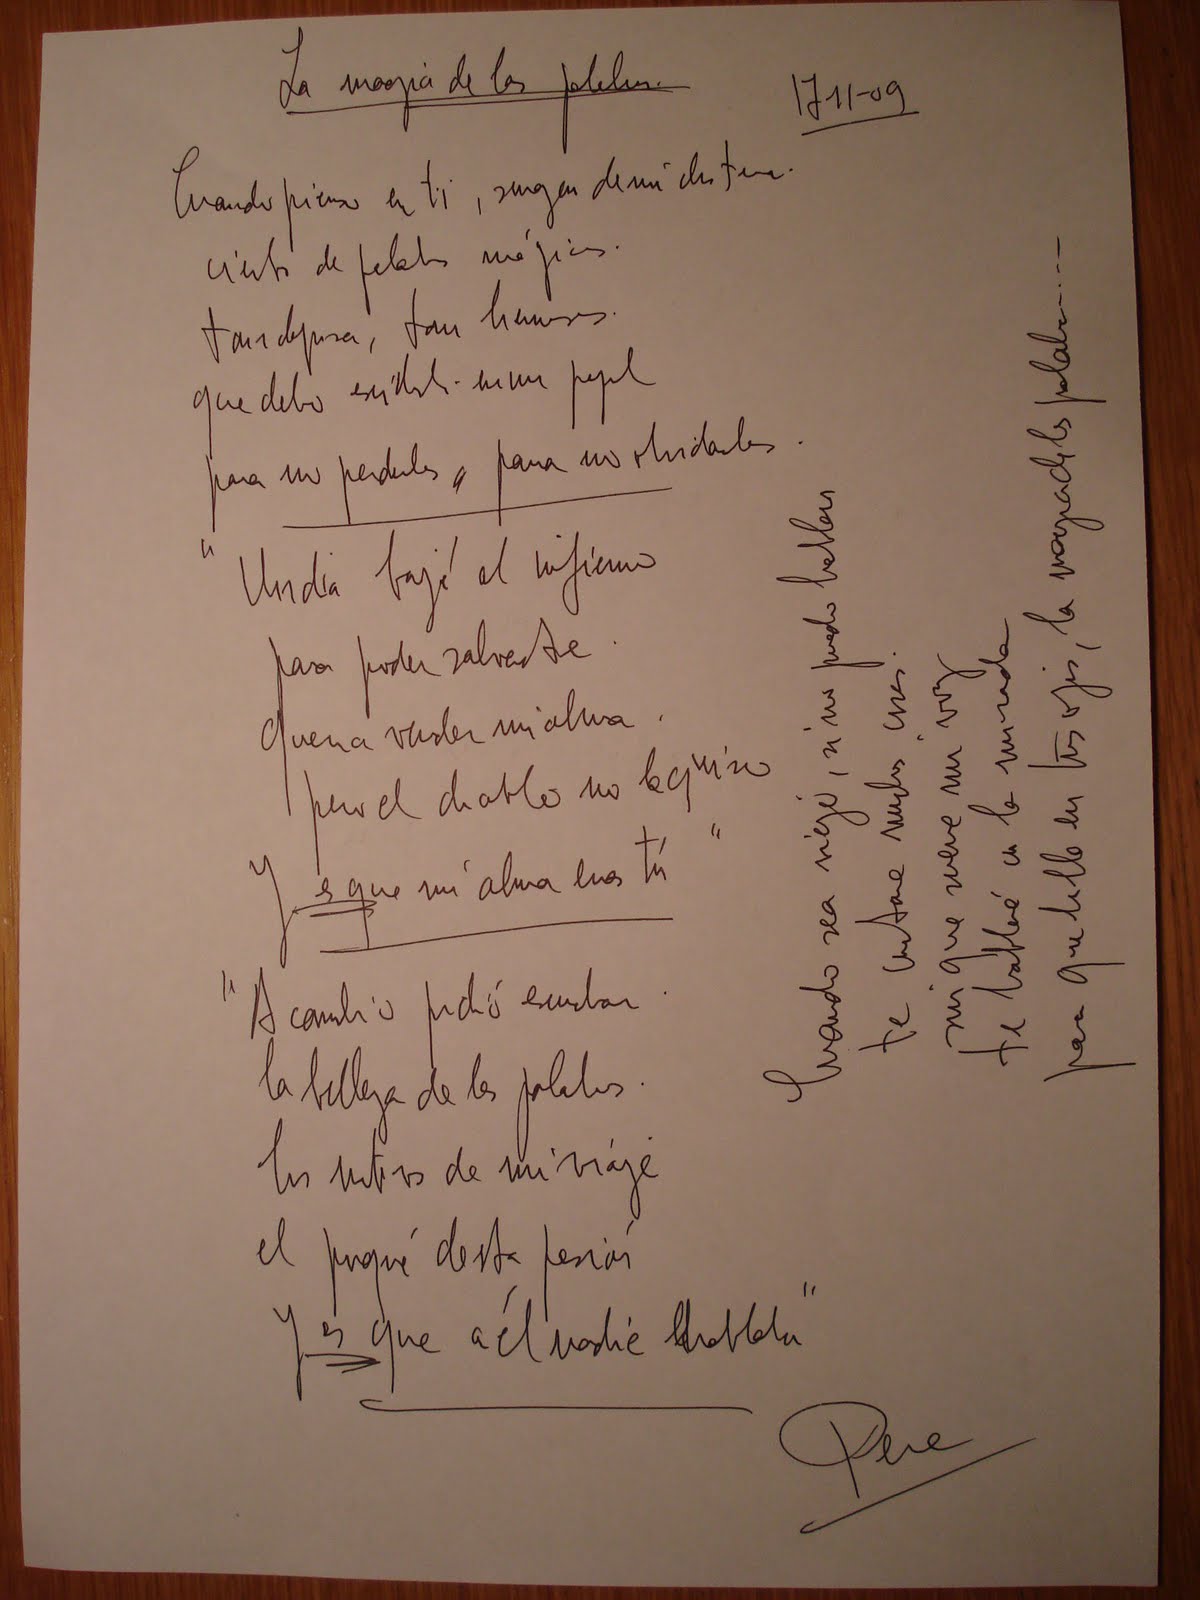 La magia de las palabras.
17-11-09
Cuando pienso en ti, surgen de mi
ciento de palabras mágicas.
tan, tan hermosas.
que debo escribirlas en un papel
para no perderlas, para no olvidarlas.
"Un día bajé al infierno
para poder salvarte.
quería vender mi alma.
pero el diablo no la quiso
Y es que mi alma eras tú"
"A cambio pidió escuchar.
la belleza de las palabras.
los motivos de mi viaje
el porqué de esta pasión
Y es que a él nadie le hablaba"
Pere
Cuando sea viejo, si no puedo hablar
te contaré muchas cosas.
sin que suene mi voz
te hablaré con la mirada
para que halle en tus ojos, la magia de las palabras....